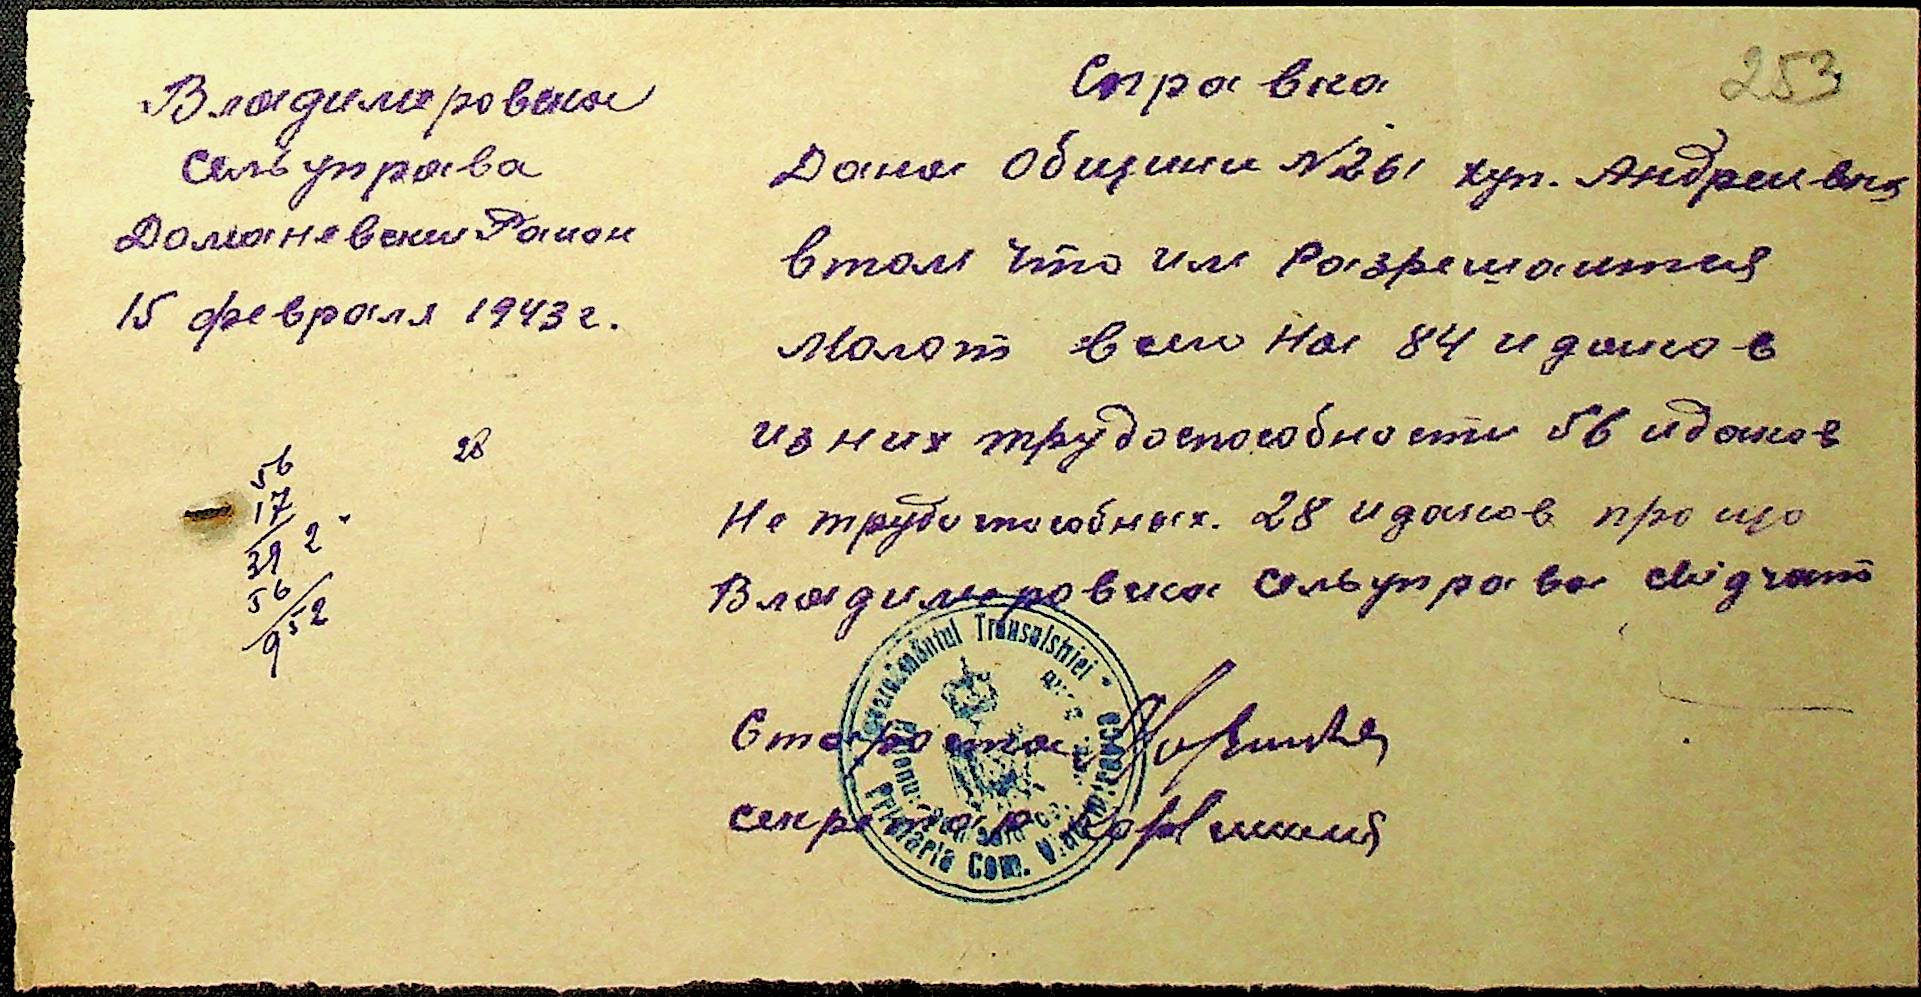 253
Владимировска
Сельуправа
Доманевски Район
15 февраля 1943 г.
Справка
Дана Общини №261 хут. Андреевка
втом что им Разрешаится
Молот всего На 84 идоков
из них трудоспособности 56 идаков
Не трудоспособных. 28 идаков про що
Владимировска Сельуправа свідчат
Староста
секретар
56
17
39 2
56
952
28
Guvernământul Transnistriei
Primăria Com. Vladimirovca